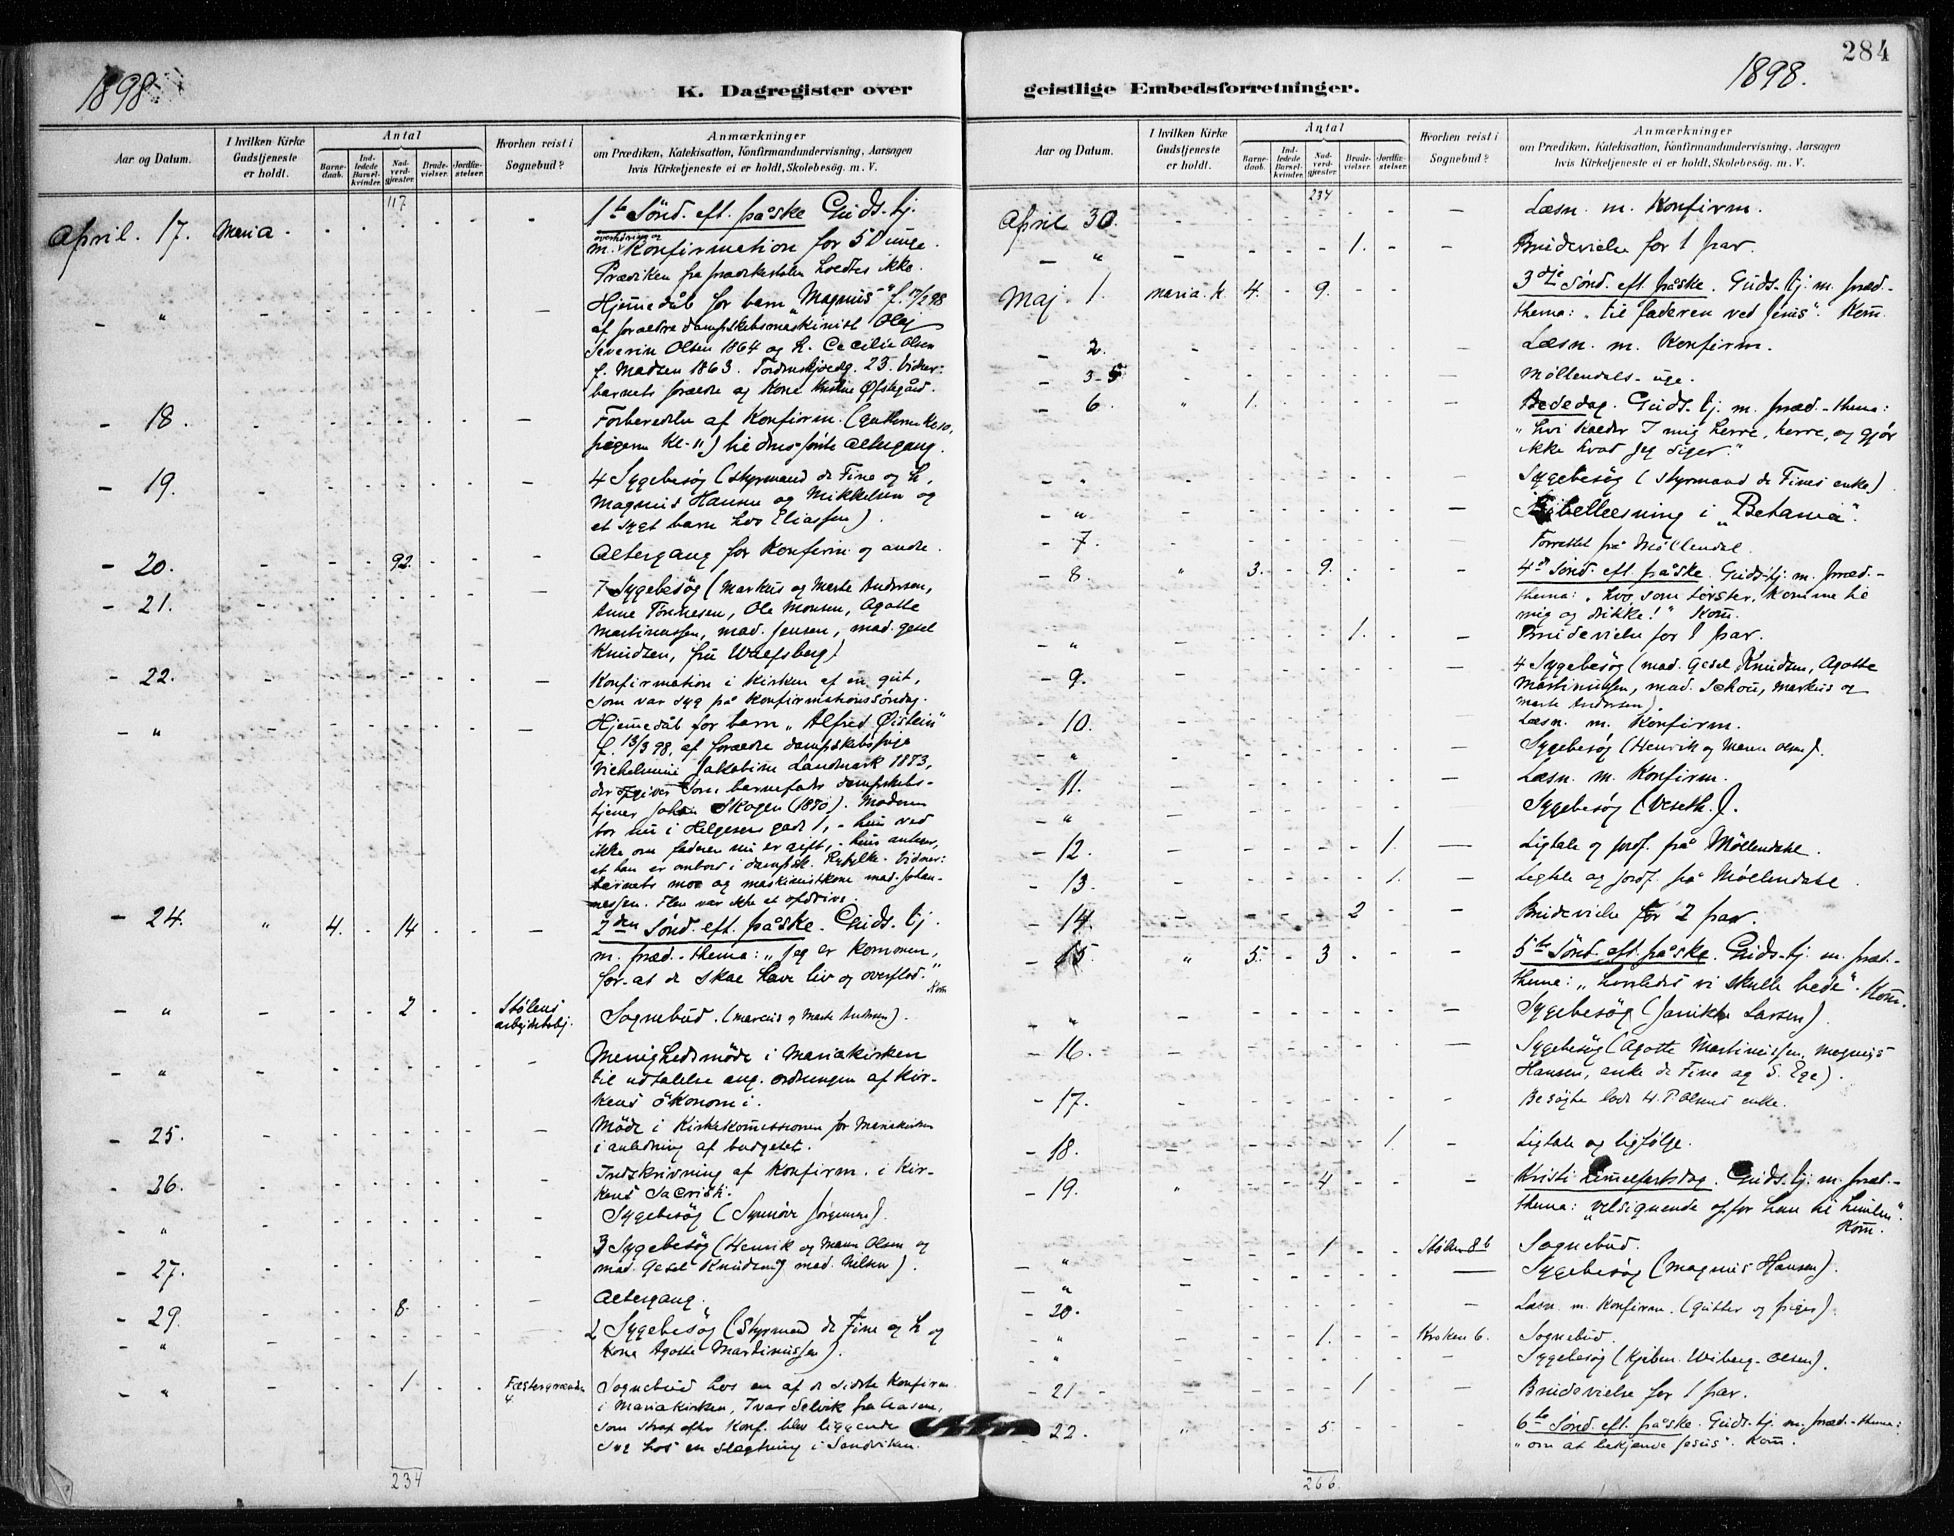 284
1898.
1898.
K. Dagregister over
geistlige Embedsforretninger.
Aar og Datum.
I hvilken Kirke Gudstjeneste er holdt.
Antal
Barne-daab.
Ind-ledede Barsel-kvinder.
Nad-verd-gjæster.
Brude-vielser.
Jordfæ-stelser.
Hvorhen reist i Sognebud?
Anmærkninger
om Prædiken, Katekisation, Konfirmandundervisning, Aarsagen
hvis Kirketjeneste ei er holdt, Skolebesøg. m. V.
117
April. 17. Maria - 1ste Sønd. eft. påske Guds-tj.
m. overhøring og Konfirmation for 50 unge.
Prædiken fra prædikestolen holdtes ikke.
- " - Hjemmedåb for barn "Magnus" f. 17/2 98
af forældre dampskibsmaskinist Olaj
Severin Olsen 1864 og h. Cecilie Olsen
f. Madsen 1863. Tordenskjoldsg. 23. Vidner:
barnets forældre og Kone Øfstegård.
- 18. - Forberedelse af Konfirm.
pigerne kl. 11) til deres første altergang.
- 19. - 4 Sygebesøg (styrmand de Fine og h,
Magnus Hansen og Mikkelsen og
et sygt barn hos Eliassen).
- 20. - 92. - Altergang for Konfirm og andre.
- 21. - 7 Sygebesøg (Markus og Marte Andersen,
Anne Tönnesen, Ole Monsen, Agotte
Martinussen, mad. Jensen, mad. Gesel
Knudsen, fru Walfsberg)
- 22. - Konfirmation i Kirken af en gut,
som var syg på Konfirmationssøndag.
- " - Hjemmedåb for barn "Alfred Øistein"
f. 13/3 98, af forældre dampskibspige
Vilhelmine Jakobine Landmark 1873,
der opgiver som barnefader dampskibs-
tjener Johan Skogen (1870). Moderen
bor nu i Helgesens gade 1, - hun ved
ikke om faderen nu er gift, - hun antager,
at han er ombord i dampsk. Vidner:
barnets mor og maskinistkone mad. Johan-
nessen.
- 24. " 4. - 14 - 2den Sønd. eft. påske. Guds. tj.
m. præd. - thema: "Jeg er kommen,
for at de skal have liv og overflod." Kom
" 2 Stølens arbejderbolig. Sognebud. (Marcus og Marte Andersen).
" - Menighedsmøde i Mariakirken
til udtalelse ang. ordningen af Kir-
kens økonomi.
- 25. - Møde i Kirkekommissionen for Mariakirken
i anledning af budgetet.
- 26. - Indskrivning af Konfirm. i Kir-
kens Sacristi.
" - Sygebesøg (Synnöve Jørgensen).
- 27. - 3 Sygebesøg (Henrik og Maren Olsen og
mad. Gesel Knudsen mad. Nilsen).
- 29. - 8. - Altergang.
" - 2 Sygebesøg (Styrmand de Fine og h og
Kone Agotte Martinussen).
" 1 Sognebud hos en af de sidste Konfirm.
i Mariakirken, Ivar Selvik fra Aasene,
som strax efter Konf. blev liggende
syg hos en slægtning i Sandviken.
234
Aar og Datum.
I hvilken Kirke Gudstjeneste er holdt.
Antal
Barne-daab.
Ind-ledede Barsel-kvinder.
Nad-verd-gjæster.
Brude-vielser.
Jordfæ-stelser.
Hvorhen reist i Sognebud?
Anmærkninger
om Prædiken, Katekisation, Konfirmandundervisning, Aarsagen
hvis Kirketjeneste ei er holdt, Skolebesøg. m. V.
234
April 30. - Læsn. m. Konfirm.
- " - 1. - Brudevielse for 1 par.
Maj. 1. Maria. k 4. - 9. - 3dje Sønd. eft. påske. Guds-tj. m. præd.-
thema: "til faderen ved Jesus". Kom.
- 2. - Læsn. m. Konfirm.
- 3-5 - Møllendals-uge.
- 6. " 1. - Bededag. Guds-tj. m. præd.-thema:
"hvi kalder I mig herre, herre, og gjør
ikke hvad jeg siger."
" - Sygebesøg (Styrmand de Fines enke)
- " - Bibellæsning i "Betania".
- 7. - Forrettet på Møllendal.
- 8. " 3. - 9. - 4de Sønd. eft. påske. Guds-tj. m. præd.-
thema: "hvo som tørster, komme til
mig og drikke!" Kom.
" - 1. - Brudevielse for 1 par.
- 9. - 4 Sygebesøg (mad. Gesel Knudsen, Agotte
Martinussen, mad. Schou, Markus og
Marte Andersen).
10. - Læsn. m. Konfirm.
" - Sygebesøg (Henrik og Maren Olsen).
- 11. - Læsn. m. Konfirm.
- " - Sygebesøg (Veseth.).
- 12. - 1. - Ligtale og jordf. på Møllendal.
- 13. - 1. - Ligtale og jordf. på Møllendal.
- 14. - 2 - Brudevielse for 2 par.
- 15. " 5. - 3 - 5te Sønd. eft. påske. Guds-tj. m. præd.-
thema: "hvorledes vi skulle bede". Kom.
- " - Sygebesøg (Janikke Larsen).
- 16. - Sygebesøg (Agotte Martinussen, Magnus
Hansen, enke de Fine og S. Ege).
- 17. - Besøgte lods H. P. Olsens enke.
- 18. - 1. - Ligtale og ligfølge.
- 19. " - 4 - Kristi himmelfartsdag. Guds-tj. m. præd.-
thema: "velsignende opfor han til himlen".
Kom.
" - 1 - Stølen 8b Sognebud.
- " - Sygebesøg (Magnus Hansen).
- 20. - Læsn. m. Konfirm. (gutter og piger).
" - 1. - Kroken 6. Sognebud.
" - Sygebesøg (Kjøbm. Wiberg-Olsen).
- 21 - 1 - Brudevielse for 1 par.
22. " - 5. - 6te Sønd. eft. påske. Guds-tj. m. præd.-thema:
"om at bekjende Jesus". Kom.
266